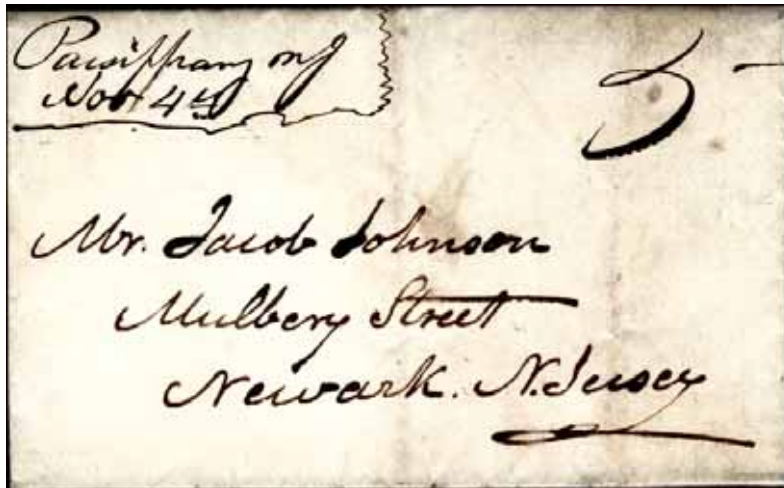 Parsippany NJ
Nov 4th
5
Mr. Jacob Johnson
Mulbery Street
Newark. N. Jersey